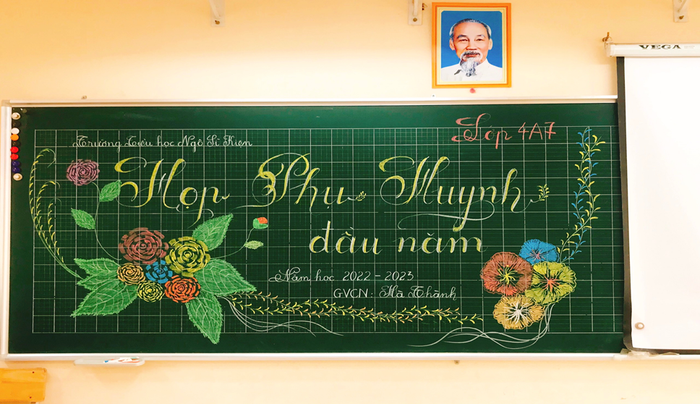 VEGA
Lớp 4A7
Trường tiểu học Ngô Sĩ Kiện
Họp Phụ Huynh
đầu năm
Năm học 2022 - 2023
GVCN: Hà Thành